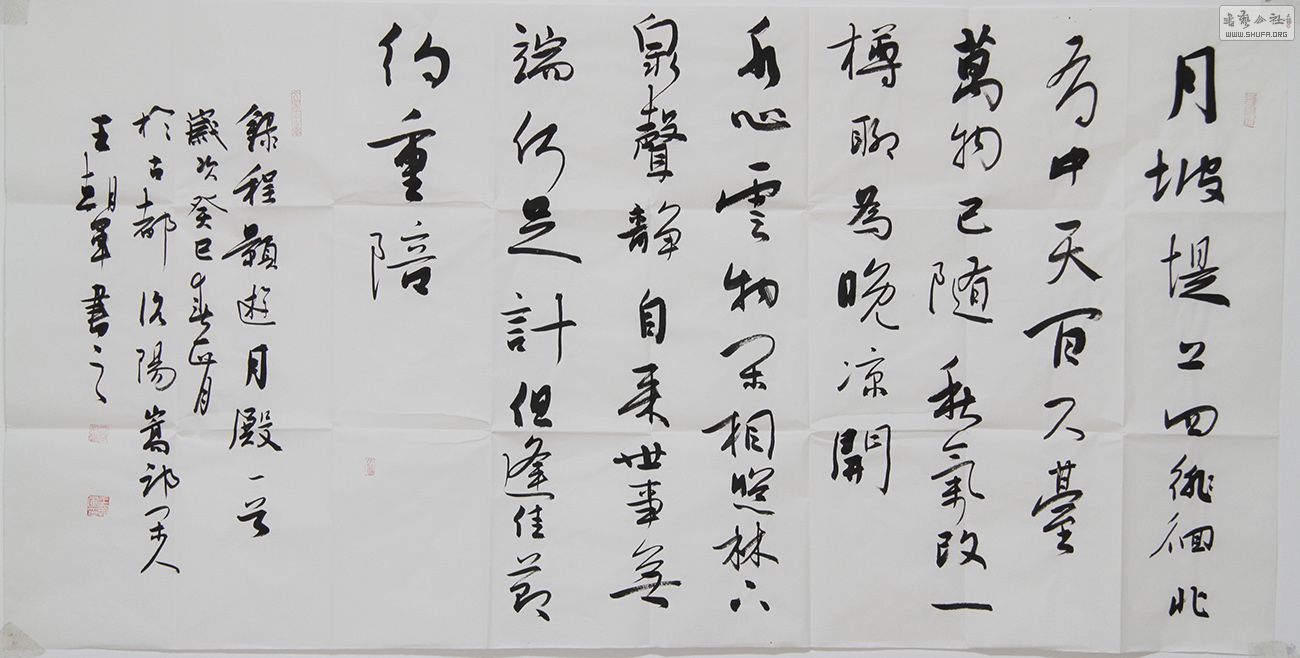 月坡堤上四徘徊北
有中天百尺臺
萬物已随秋氣改一
樽聊為晚凉開
水心雲物閑相照林下
泉聲静自来世事無
端何足計但逢佳節
約重陪
録程顥遊月殿一首
歲次癸巳春正月
於古都洛陽嵩祁閑人
王朝軍書之
書藝公社
WWW.SHUFA.ORG